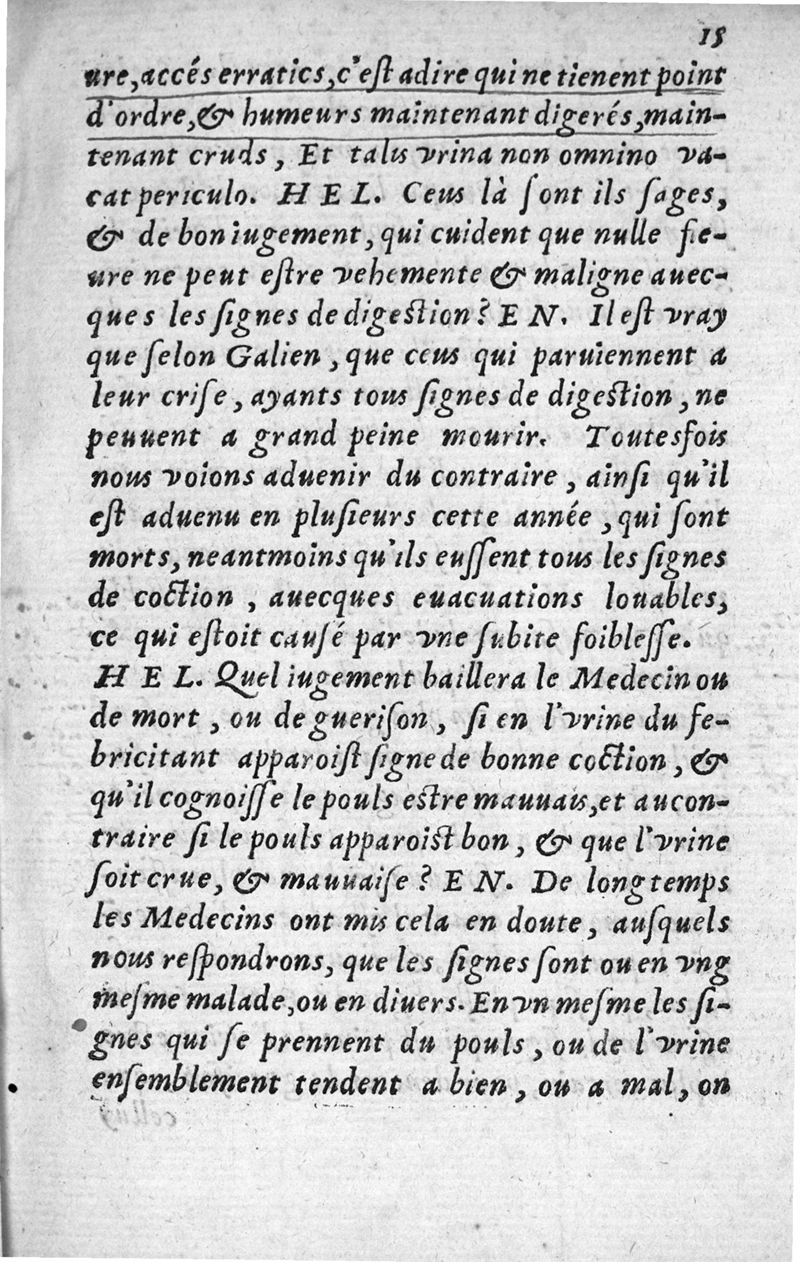 15
ure,accés erratics,c'eſt adire qui ne tienent point
d'ordre,& humeurs maintenant digerés,main-
tenant cruds, Et talis vrina non omnino va-
cat periculo. H E L. Ceus là ſont ils ſages,
& de bon iugement, qui cuident que nulle fie-
ure ne peut eſtre vehemente & maligne auec-
ques les ſignes de digeſtion? E N. Il eſt vray
que ſelon Galien, que ceus qui paruiennent a
leur criſe, ayants tous ſignes de digeſtion, ne
peuuent a grand peine mourir. Toutesfois
nous voions aduenir du contraire, ainſi qu'il
eſt aduenu en pluſieurs cette année, qui ſont
morts, neantmoins qu'ils euſſent tous les ſignes
de coction, auecques euacuations louables,
ce qui eſtoit cauſé par vne ſubite foibleſſe.
H E L. Quel iugement baillera le Medecin ou
de mort, ou de gueriſon, ſi en l'vrine du fe-
bricitant apparoiſt ſigne de bonne coction, &
qu'il cognoiſſe le pouls eſtre mauuais,et au con-
traire ſi le pouls apparoiſt bon, & que l'vrine
ſoit crue, & mauuaiſe? E N. De long temps
les Medecins ont mis cela en doute, auſquels
nous reſpondrons, que les ſignes ſont ou en vng
meſme malade,ou en diuers. En vn meſme les ſi-
gnes qui ſe prennent du pouls, ou de l'vrine
enſemblement tendent a bien, ou a mal, on